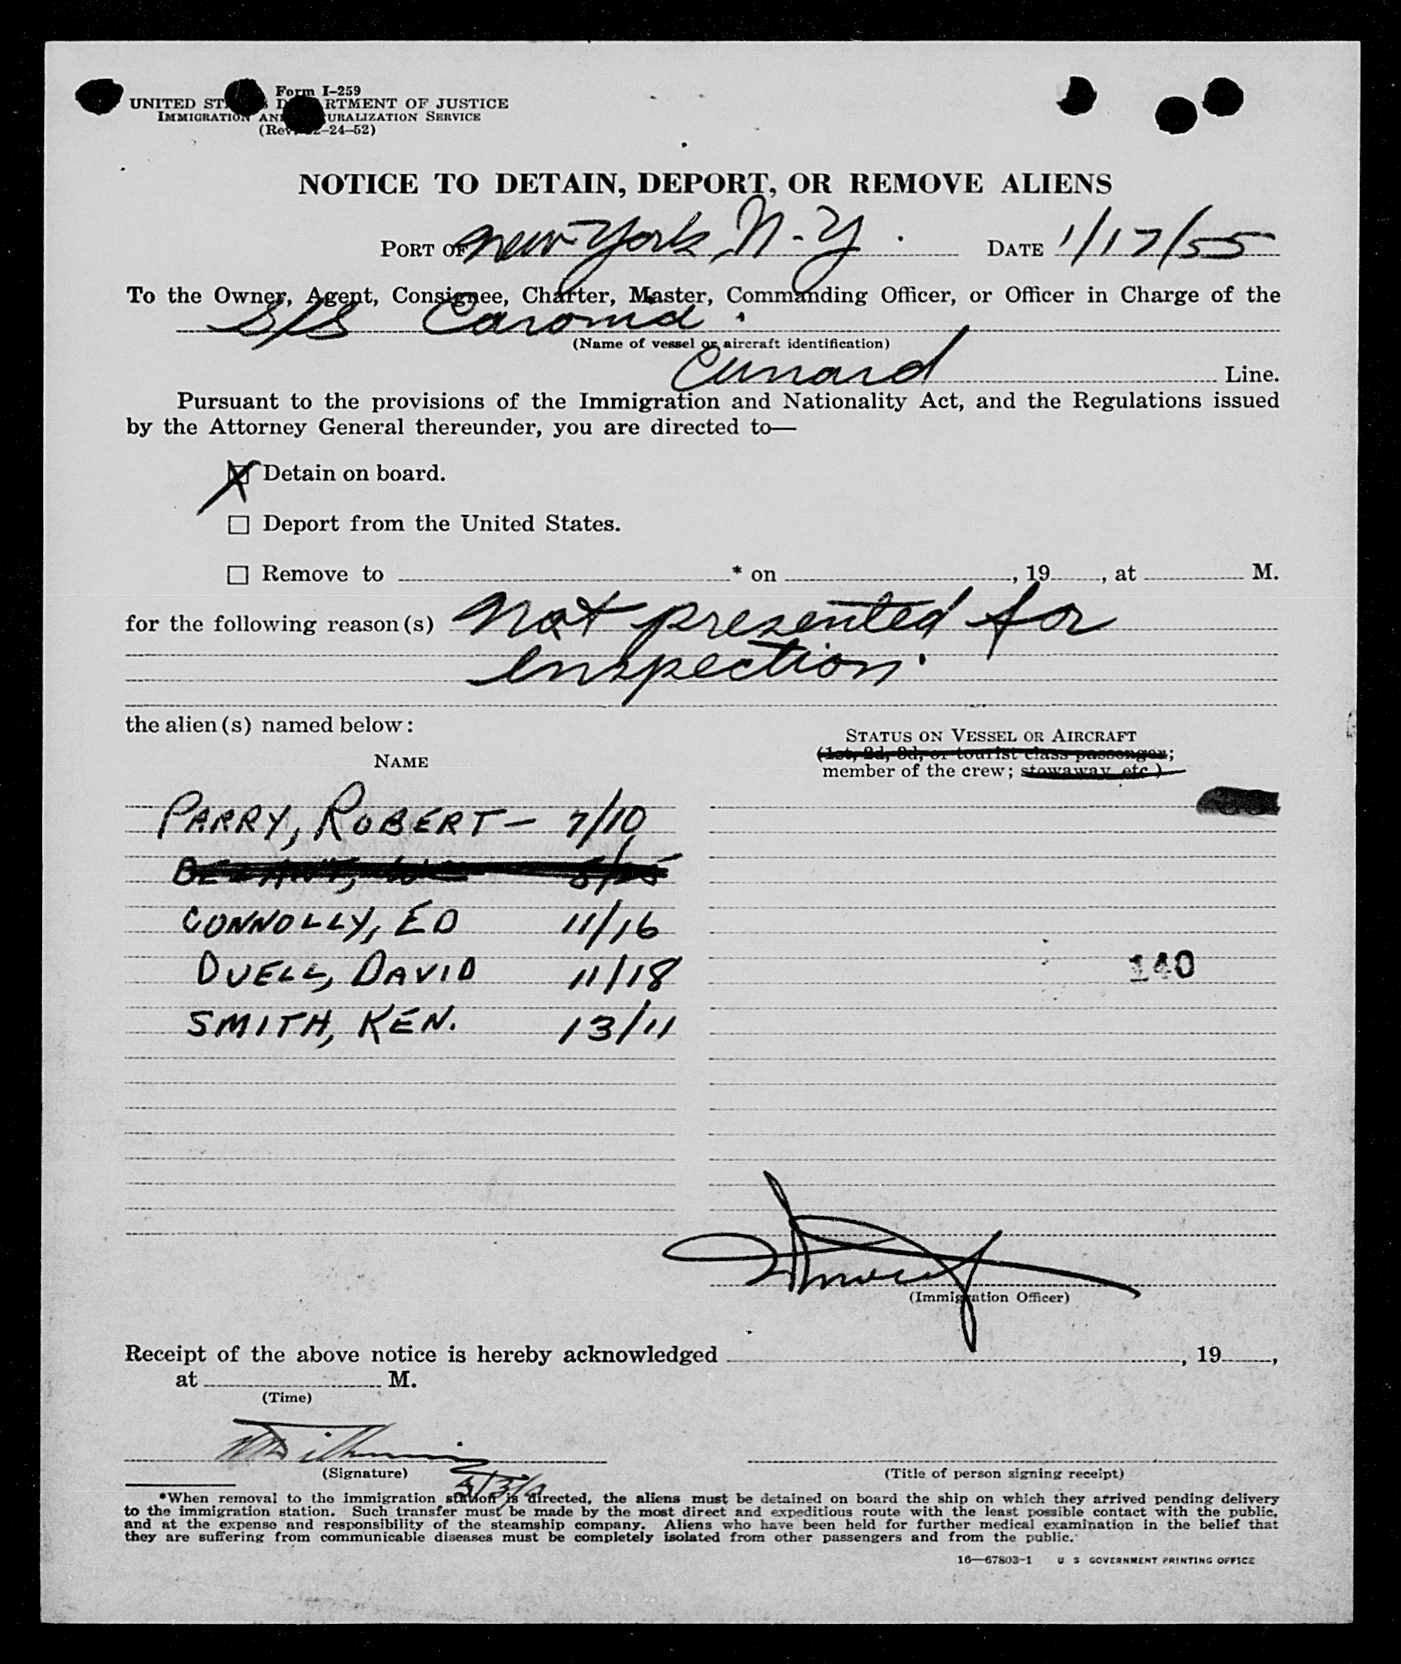 Form I-259
UNITED ST S D RTMENT OF JUSTICE
IMMIGRATION AN URALIZATION SERVICE
(Rev. 2-24-52)
NOTICE TO DETAIN, DEPORT, OR REMOVE ALIENS
PORT OF New York N.Y. DATE 1/17/55
To the Owner, Agent, Consignee, Charter, Master, Commanding Officer, or Officer in Charge of the
S/S Caronia.
(Name of vessel or aircraft identification)
Cunard Line.
Pursuant to the provisions of the Immigration and Nationality Act, and the Regulations issued
by the Attorney General thereunder, you are directed to—
X Detain on board.
☐ Deport from the United States.
☐ Remove to * on , 19 , at M.
for the following reason(s) Not presented for
Inspection.
the alien(s) named below:
STATUS ON VESSEL OR AIRCRAFT
NAME
(1st, 2d, 3d, or tourist class passenger;
member of the crew; stowaway, etc.)
PARRY, ROBERT - 7/10
CONNOLLY, ED 11/16
DUELL, DAVID 11/18
140
SMITH, KEN. 13/11
(Immigration Officer)
Receipt of the above notice is hereby acknowledged , 19 ,
at M.
(Time)
(Signature) (Title of person signing receipt)
*When removal to the immigration station is directed, the aliens must be detained on board the ship on which they arrived pending delivery
to the immigration station. Such transfer must be made by the most direct and expeditious route with the least possible contact with the public,
and at the expense and responsibility of the steamship company. Aliens who have been held for further medical examination in the belief that
they are suffering from communicable diseases must be completely isolated from other passengers and from the public.
16—67803-1 U S GOVERNMENT PRINTING OFFICE